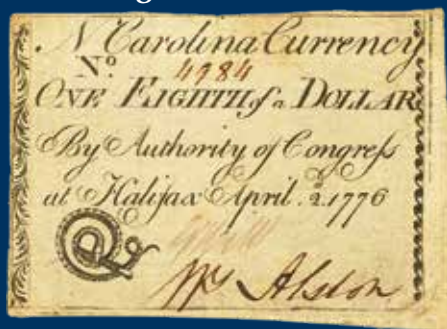 N Carolina Currency
No. 4984
ONE EIGHTH of a DOLLAR
By Authority of Congress
at Halifax April. 2. 1776
Wm Alston